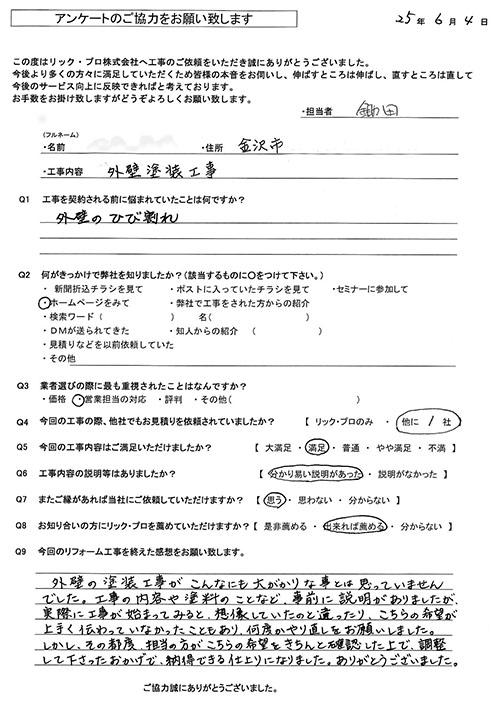 アンケートのご協力をお願い致します
25年 6月 4日
この度はリック・プロ株式会社へ工事のご依頼をいただき誠にありがとうございました。
今後より多くの方々に満足していただくため皆様の本音をお伺いし、伸ばすところは伸ばし、直すところは直して
今後のサービス向上に反映できればと考えております。
お手数をお掛け致しますがどうぞよろしくお願い致します。
・担当者 鋤田
(フルネーム)
・名前 ・住所 金沢市
・工事内容 外壁塗装工事
Q1 工事を契約される前に悩まれていたことは何ですか?
外壁のひび割れ
Q2 何がきっかけで弊社を知りましたか?(該当するものに〇をつけて下さい。)
・ 新聞折込チラシを見て ・ポストに入っていたチラシを見て ・セミナーに参加して
・ホームページをみて ・弊社で工事をされた方からの紹介
・検索ワード ( ) 名( )
・DMが送られてきた ・知人からの紹介 ( )
・見積りなどを以前依頼していた
・その他
Q3 業者選びの際に最も重視されたことはなんですか?
・価格 ・営業担当の対応 ・評判 ・その他( )
Q4 今回の工事の際、他社でもお見積りを依頼されていましたか? 【 リック・プロのみ ・ 他に 1 社 】
Q5 今回の工事内容はご満足いただけましたか? 【 大満足 ・ 満足 ・ 普通 ・ やや満足 ・ 不満 】
Q6 工事内容の説明等はありましたか? 【 分かり易い説明があった ・ 説明がなかった 】
Q7 またご縁があれば当社にご依頼していただけますか? 【 思う ・ 思わない ・ 分からない 】
Q8 お知り合いの方にリック・プロを薦めていただけますか? 【 是非薦める ・ 出来れば薦める ・ 分からない 】
Q9 今回のリフォーム工事を終えた感想をお願い致します。
外壁の塗装工事がこんなにも大がかりな事とは思っていません
でした。工事の内容や塗料のことなど、事前に説明がありましたが、
実際に工事が始まってみると、想像していたのと違ったり、こちらの希望が
上手く伝わっていなかったこともあり、何度かやり直しをお願いしました。
しかし、その都度、担当の方がこちらの希望をきちんと確認した上で、調整
して下さったおかげで、納得できる仕上りになりました。ありがとうございました。
ご協力誠にありがとうございました。